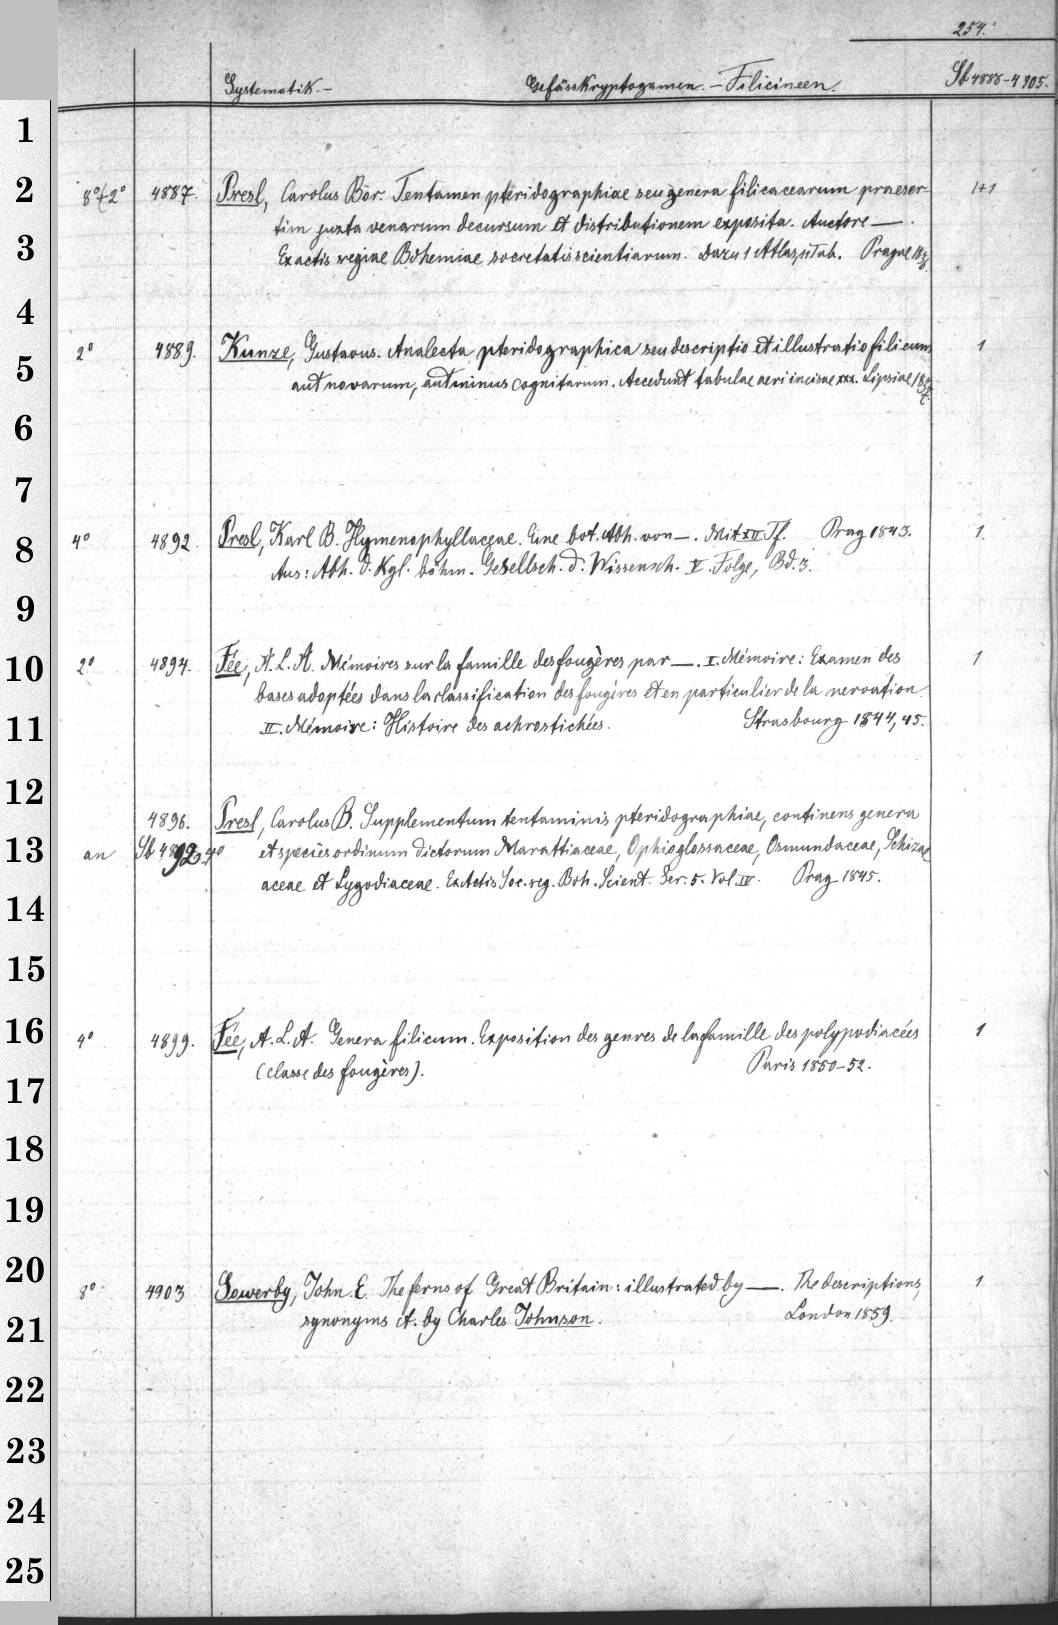 254.
Systematik.- Gefässkryptogamen. - Filicineen. Sb 4886-4905.
1
2 8°+2° 4887. Presl, Carolus Bor. Tentamen pteridographiae seu genera filicacearum praeser- 1+1
tim juxta venarum decursum et distributionem exposita. Auctore —.
3 Ex actis regiae Bohemiae societatis scientiarum. Dazu 1 Atlas, 11 Tab. Pragae
4
2° 4889. Kunze, Gustavus. Analecta pteridographica seu descriptio et illustratio filicum 1
5 aut novarum, aut minus cognitarum. Accedunt tabulae aeri incisae xxx. Lipsiae 1837.
6
7
8 4° 4892. Presl, Karl B. Hymenophyllaceae. Eine bot. Abh. von —. Mit XII Tf. Prag 1843. 1.
Aus: Abh. d. Kgl. böhm. Gesellsch. d. Wissensch. V. Folge, Bd. 3.
9
10 2° 4894. Fée, A. L. A. Mémoires sur la famille des fougères par —. I. Mémoire: Examen des 1
bases adoptées dans la classification des fougères et en particulier de la nervation.
11 II. Mémoire: Histoire des achrostichées. Strasbourg 1844, 45.
12
4896. Presl, Carolus B. Supplementum tentaminis pteridographiae, continens genera
13 an Sb 4892, 4° et species ordinum dictorum Marattiaceae, Ophioglossaceae, Osmundaceae, Schizae
aceae et Lygodiaceae. Ex Actis Soc. reg. Boh. Scient. Ser. 5. Vol. IV. Prag 1845.
14
15
16 4° 4899. Fée, A. L. A. Genera filicum. Exposition des genres de la famille des polypodiacées 1
(classe des fougères). Paris 1850-52.
17
18
19
20 8° 4903 Sowerby, John. E. The ferns of Great Britain: illustrated by —. The descriptions, 1
21 synonyms et. by Charles Johnson. London 1859.
22
23
24
25